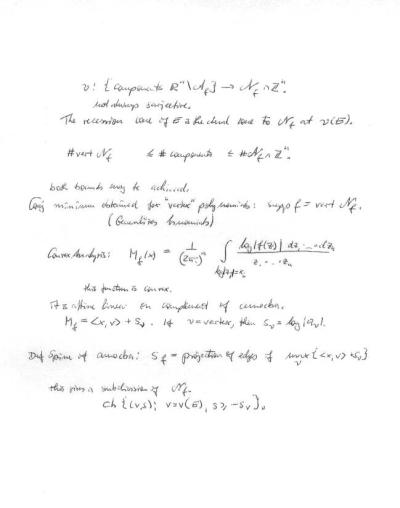 ν: {components ℝⁿ\𝒜_f} → 𝒩_f ∩ ℤⁿ.
not always surjective.
The recession cone of E is the dual cone to 𝒩_f at ν(E).
# vert 𝒩_f ≤ # components ≤ # 𝒩_f ∩ ℤⁿ.
both bounds may be achieved.
Conj minimum obtained for "vertex" polynomials: supp f = vert 𝒩_f.
(Generalizes binomials)
Convex Analysis: M_f(x) = 1/(2πi)ⁿ ∫_{Log|z|=x} log|f(z)| dz₁…dzₙ / z₁…zₙ
this function is convex.
It is affine linear on complement of amoeba.
M_f = <x, ν> + S_ν. If ν = vertex, then S_ν = log|a_ν|.
Def Spine of amoeba: S_f = projection of edges of max_ν {<x, ν> + S_ν}
this gives a subdivision of 𝒩_f.
ch {(ν, s); ν = ν(E), s ≥ -S_ν}.